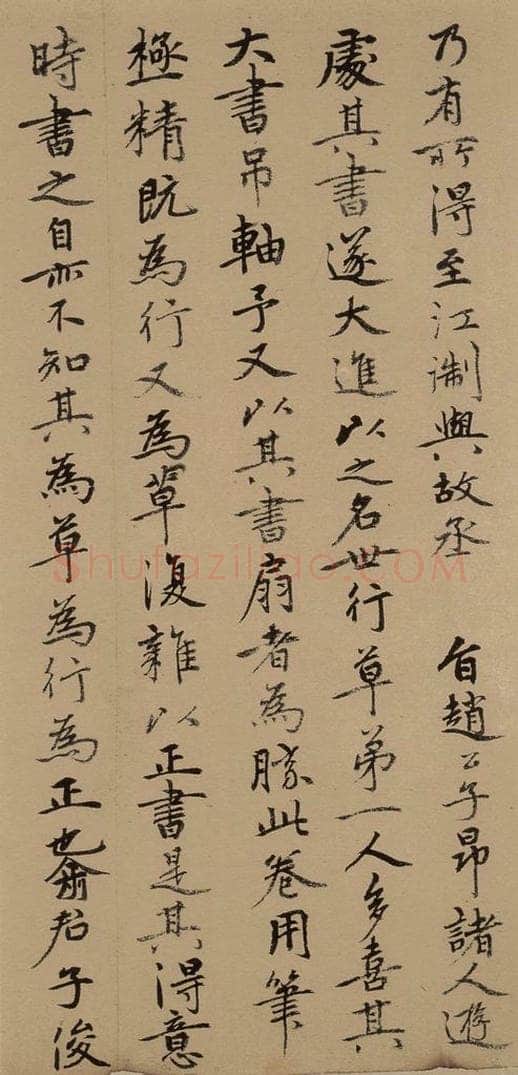 乃有所得至江淛與故丞 旨趙公子昂諸人遊
處其書遂大進以之名世行草弟一人多喜其
大書吊軸予又以其書扇者為勝此卷用筆
極精既為行又為草復雜以正書是其得意
時書之自亦不知其為草為行為正也俞君子俊
shufaziliao.COM